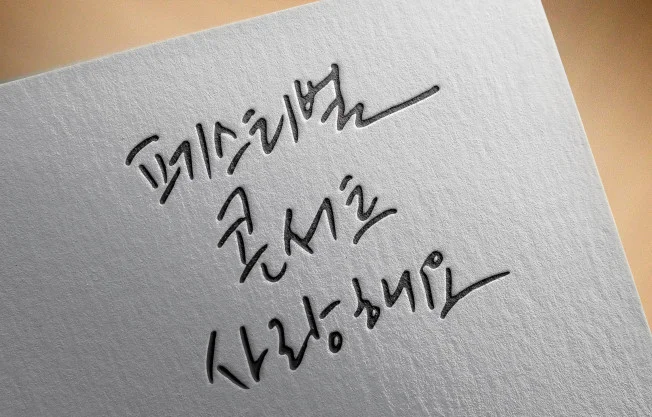 페스티벌
콘서트
사랑해요